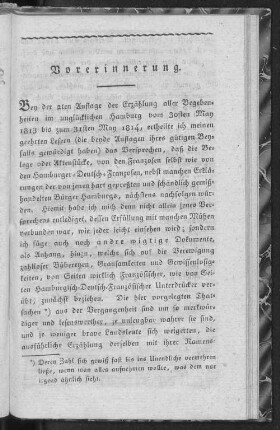 Vorerinnerung.
Bey der 2ten Auflage der Erzählung aller Begeben-
heiten im unglücklichen Hamburg vom 30sten May
1813 bis zum 31sten May 1814, ertheilte ich meinen
geehrten Lesern (die beyde Auflagen ihres gütigen Bey-
falls gewürdigt haben) das Versprechen, daß die Be-
lege oder Aktenstücke, von den Franzosen selbst wie von
den Hamburger-Deutsch-Franzosen, nebst manchen Erklä-
rungen der von jenen hart gepreßten und schändlich gemiß-
handelten Bürger Hamburgs, nächstens nachfolgen würd-
den. Hiemit habe ich mich denn nicht allein jenes Ver-
sprechens entledigt, dessen Erfüllung mit manchen Mühen
verbunden war, wie jeder leicht einsehen wird; sondern
ich füge auch noch andere wigtige Dokumente,
als Anhang, hinzu, welche sich auf die Verewigung
zahlloser Bübereyen, Grausamkeiten und Gewissenlosig-
keiten, von Seiten wirklich Französischer, wie von Sei-
ten Hamburgisch-Deutsch-Französischer Unterdrücker ver-
übt, zunächst beziehen. Die hier vorgelegten That-
sachen *) aus der Vergangenheit sind um so merkwür-
diger und lesenswerther, je unleugbar wahrer sie sind,
und je weniger brave Landsleute sich weigerten, die
ausführliche Erzählung derselben mit ihrer Namens-
*) Deren Zahl sich gewiß fast bis ins Unendliche vermehren
ließe, wenn man alles aufnehmen wollte, was dem nur
irgend ähnlich sieht.